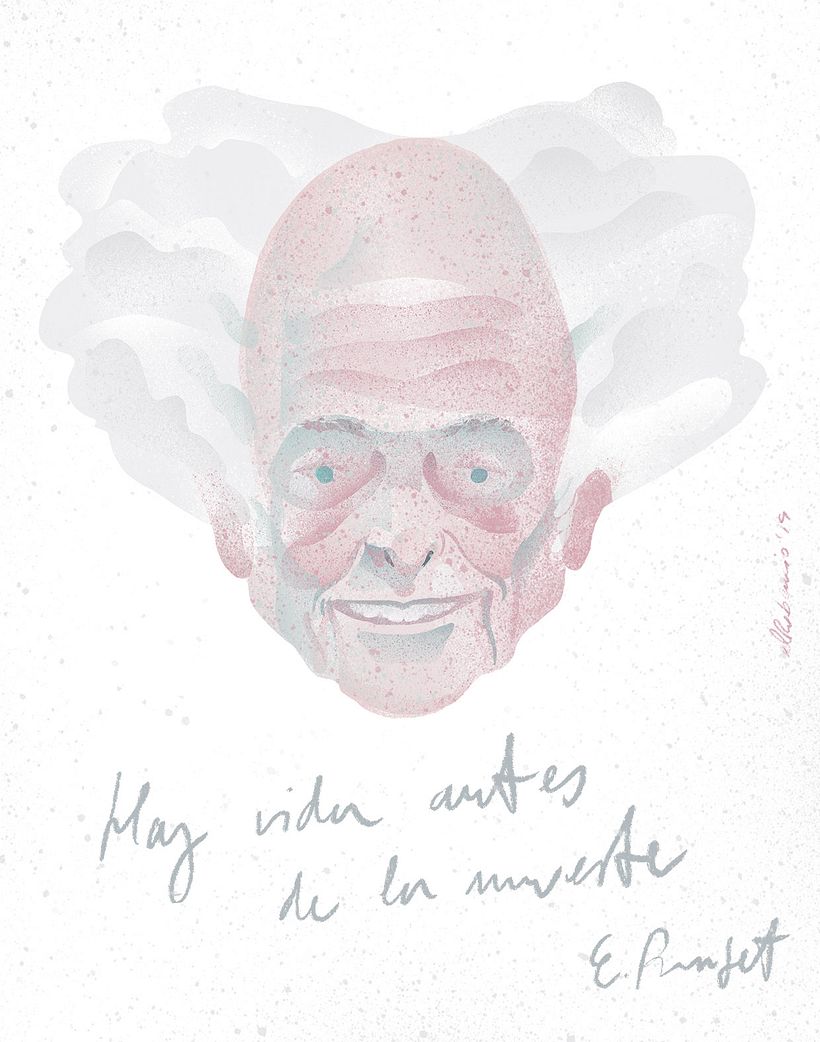 Hay vida antes
de la muerte
E. Punset
'19